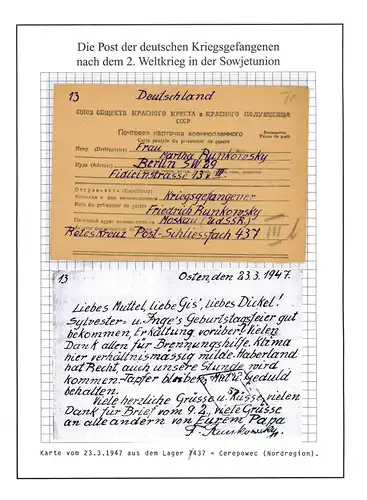 Die Post der deutschen Kriegsgefangenen
nach dem 2. Weltkrieg in der Sowjetunion
13 Deutschland
СОЮЗ ОБЩЕСТВ КРАСНОГО КРЕСТА и КРАСНОГО ПОЛУМЕСЯЦА
СССР
Почтовая карточка военнопленного
Carte postale du prisonnier de guerre
Кому (Destinataire) Frau
Martha Runkowsky
Куда (Adresse) Berlin SW 29
Fidicinstrasse 13
Отправитель (Expéditeur)
Kriegsgefangener
Friedrich Runkowsky
Moskau (UdSSR)
Rotes Kreuz Post-Schliessfach 437
13 Osten, den 23.3.1947.
Liebes Muttel, liebe Gis', liebes Dickel!
Sylvester- u. Inge's Geburtstagsfeier gut
bekommen, Erkältung vorüber! Vielen
Dank allen für Brennungshilfe. Klima
hier verhältnismässig milde. Haberland
hat Recht, auch unsere Stunde wird
kommen. Tapfer bleiben, Mut u. Geduld
behalten.
Viele herzliche Grüsse u. Küsse, vielen
Dank für Brief vom 9.2., viele Grüsse
an alle andern von Eurem Papa
F. Runkowsky
Karte vom 23.3.1947 aus dem Lager 7437 = Cerepowec (Nordregion).